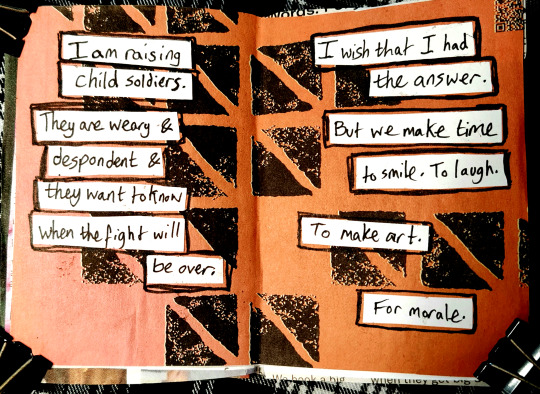 words. 
I am raising
child soldiers.
They are weary &
despondent &
they want to know
when the fight will
be over.
I wish that I had
the answer.
But we make time
to smile. To laugh.
To make art.
For morale.
We book a big
when they get big